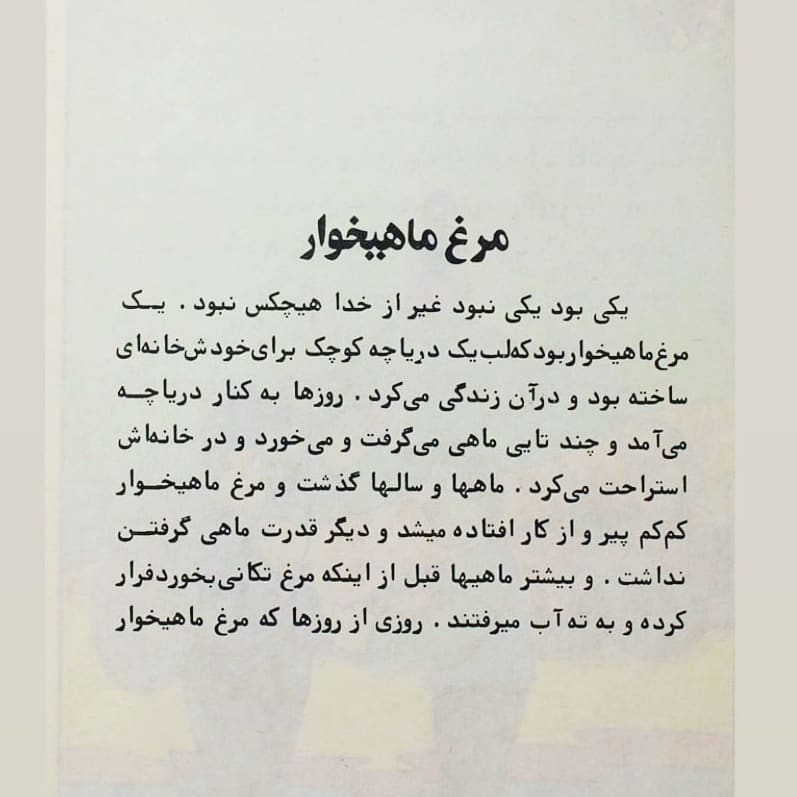 مرغ ماهیخوار
یکی بود یکی نبود غیر از خدا هیچکس نبود . یک
مرغ ماهیخوار بود که لب یک دریاچه کوچک برای خودش خانه‌ای
ساخته بود و در آن زندگی می‌کرد . روزها به کنار دریاچه
می‌آمد و چند تایی ماهی می‌گرفت و می‌خورد و در خانه‌اش
استراحت می‌کرد . ماهها و سالها گذشت و مرغ ماهیخوار
کم‌کم پیر و از کار افتاده میشد و دیگر قدرت ماهی گرفتن
نداشت . و بیشتر ماهیها قبل از اینکه مرغ تکانی بخورد فرار
کرده و به ته آب میرفتند . روزی از روزها که مرغ ماهیخوار